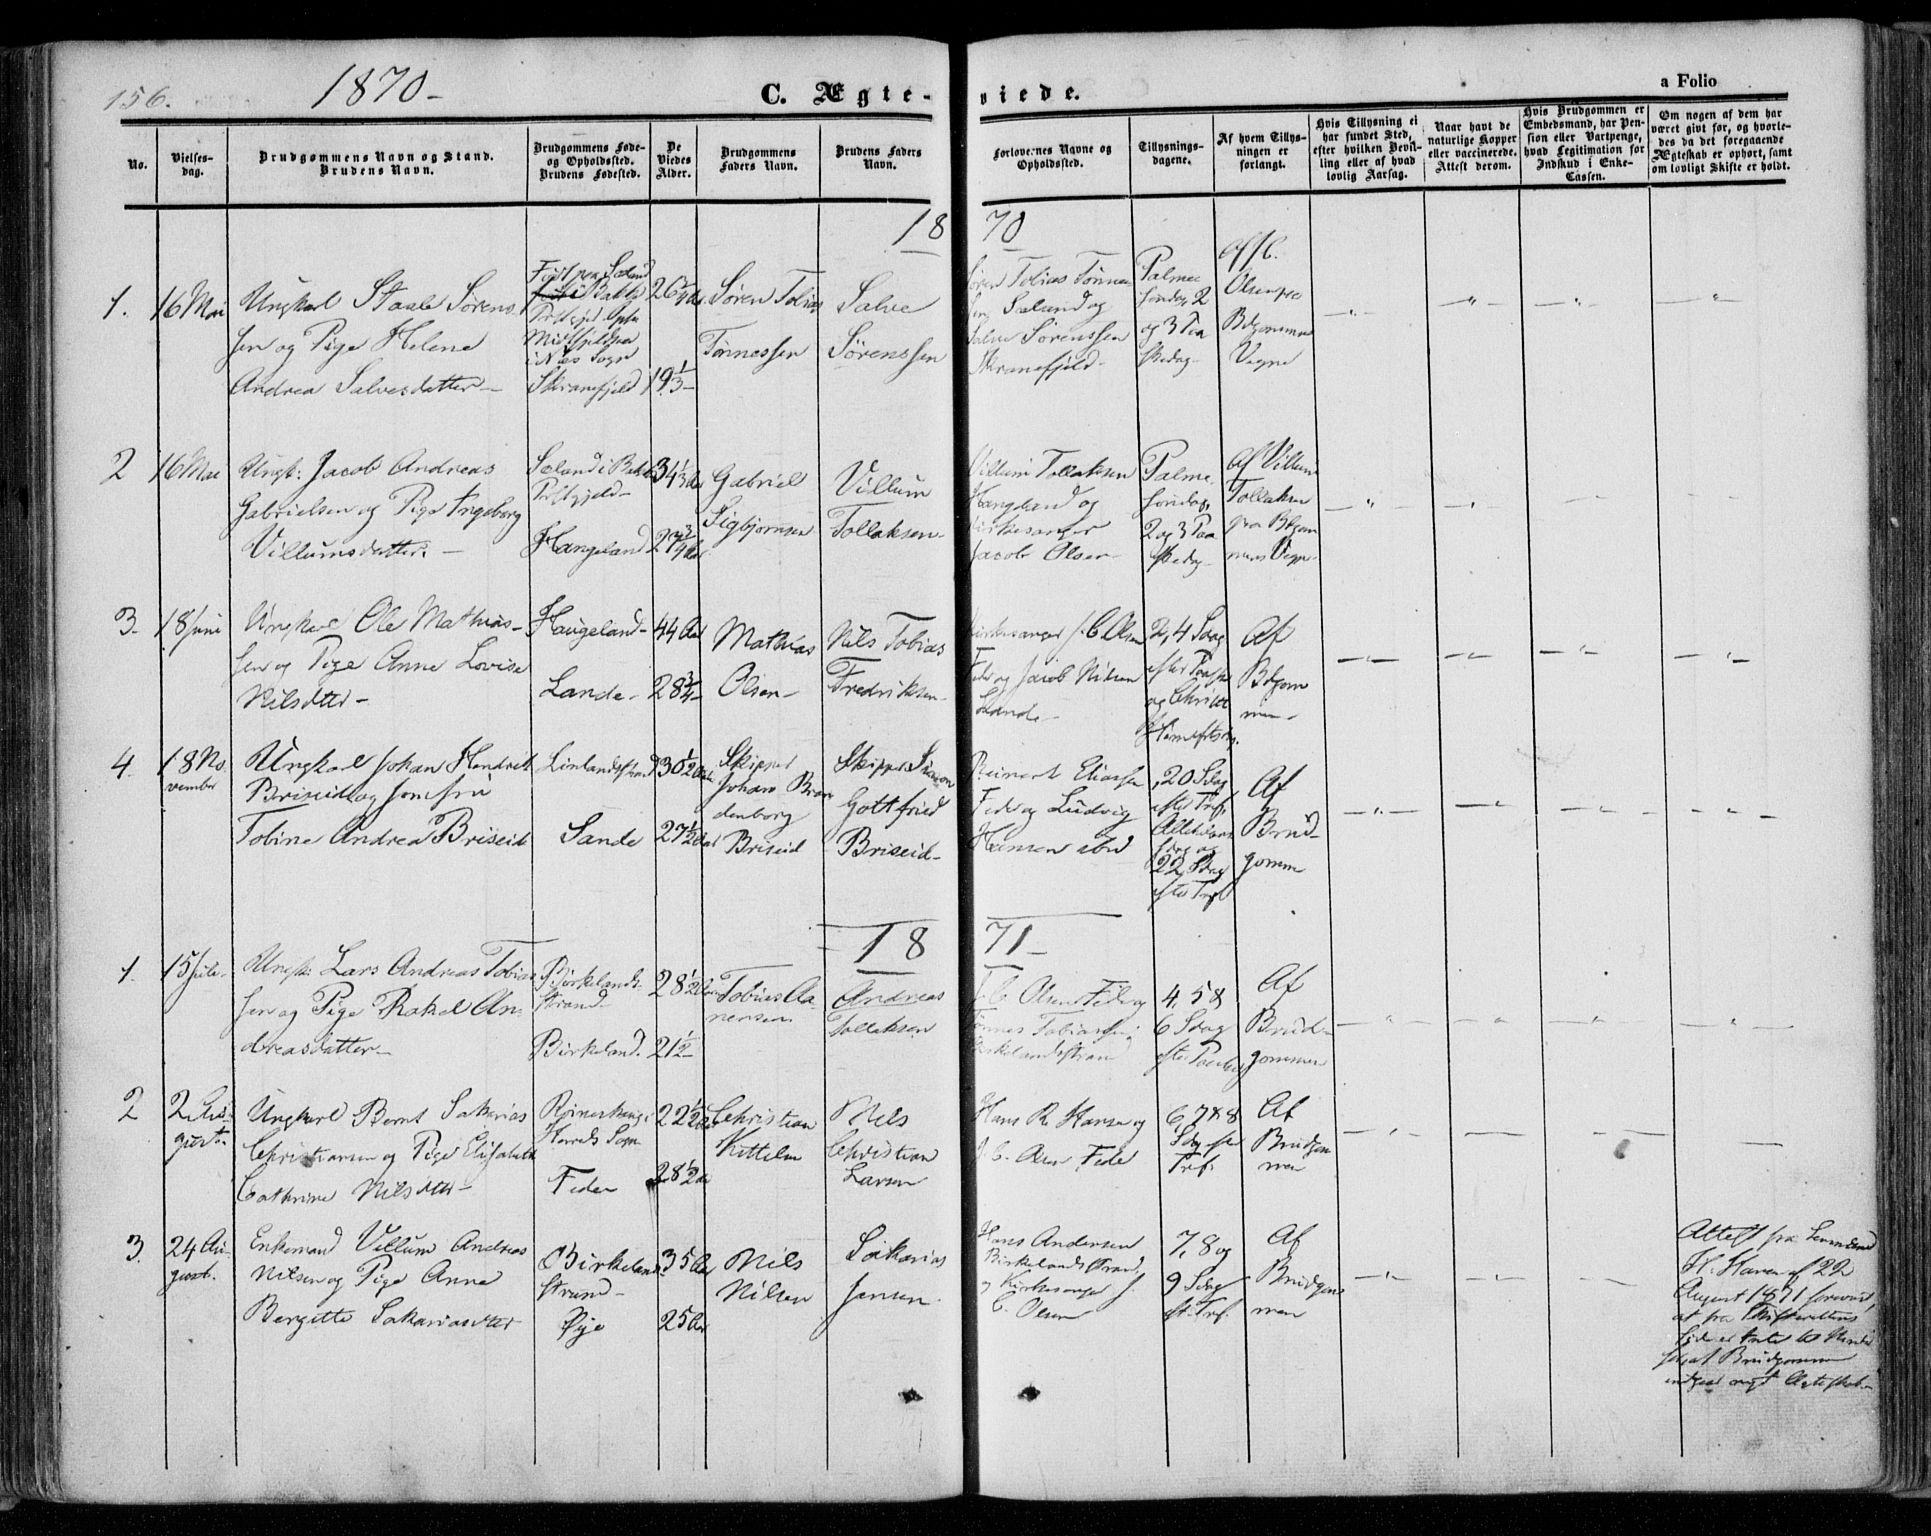 156.
1870-
C. Ægte-
viede.
a Folio
No.
Vielses-
dag.
Brudgommens Navn og Stand.
Brudens Navn.
Brudgommens Føde-
og Opholdssted.
Brudens Fødested.
De
Viedes
Alder.
Brudgommens
Faders Navn.
Brudens Faders
Navn.
Forlovernes Navne og
Opholdssted.
Tillysnings-
dagene.
Af hvem Tillys-
ningen er
forlangt.
Hvis Tillysning ei
har fundet Sted,
efter hvilken Bevil-
ling eller af hvad
lovlig Aarsag.
Naar havt de
naturlige Kopper
eller vaccinerede.
Attest derom.
Hvis Brudgommen er
Embedsmand, har Pen-
sion eller Vartpenge,
hvad Legitimation for
Indskud i Enke-
Cassen.
Om nogen af dem har
været givt før, og hvorle-
des da det foregaaende
Ægteskab er ophørt, samt
om lovligt Skifte er holdt.
18
70
1.
16 Mai
Ungkarl Staale Sørens-
sen og Pige Helene
Andrea Salvesdatter-
i Næs Sogn
Skranefjeld
26 1/4 Aar
19 1/3-
Søren Tobias
Tønnessen
Salve
Sørenssen
Søren Tobias Tønnes-
sen Sæland og
Salve Sørenssen
Skranefjeld-
Palme
søndag, 2
og 3 Paa
skedag-
Olsen paa
Bdgommens
Vegne
2
16 Mai
Ungk: Jacob Andreas
Gabrielsen og Pige Ingeborg
Villumsdatter.-
Sæland i Bakke
Prstgjeld-
Haugeland
34 1/3 Aar
27 3/4 Aar
Gabriel
Sigbjørnsen
Villum
Tollaksen-
Villum Tollaksen
Haugeland og
Kirkesanger
Jacob Olsen-
Palme
søndag,
2 og 3 Paa
skedag-
Af Villum
Tollaksen
paa Bdgom
mens Vegne
3-
18 Juni
Ungkarl Ole Mathias-
sen og Pige Anne Lovise
Nilsdtter-
Haugeland-
Lande-
44 Aar
28 3/4-
Mathias
Olsen-
Nils Tobias
Fredriksen-
Kirkesanger J. C. Olsen
Fede og Jacob Nilsen
Lande-
2, 4 Sdag
efter Paaske
og Christi
Himmelfartsdg.
Af
Bdgom
men-
4.
18 No-
vember
Ungkarl Johan Hendrik
Briseid og Jomfru
Tobine Andrea Briseid
Linlandsstrand
Sande
30 1/2 Aar
27 1/2 Aar
Skipper
Johan Bran
denborg
Briseid
Skipper Simon
Gottfried
Briseid-
Reinert Eliassen
Fede og Ludvig
Hansen ibd
20 Sdag
efter Tref.
Allehelgens
Sdag og
22 Sdag
efter Tref
Af
Brud-
gomme
18
71-
1.
15 Juli-
Ungk: Lars Andreas Tobias
sen og Pige Rakel An-
dreasdatter-
Birkelands-
strand-
Birkeland.
28 1/2 Aar
21 1/2-
Tobias Aa-
nensen
Andreas
Tollaksen
J. C. Olsen Fede og
Tønnes Tobiassen
Birkelandsstrand
4, 5 &
6 Sdag
efter Paaske
Af
Brud-
gommen
2
2 Au-
gust-
Ungkarl Bernt Sakarias
Christiansen og Pige Elisabeth
Cathrine Nilsdtter-
Herreds Sogn
Feden
22 1/2 Aar
28 1/2 Aar
Christian
Kittelsen
Nils
Christian
Larsen
Hans R. Hansen og
J. C. Olsen Fede
6, 7 & 8
Sdag efter
Tref.
Af
Brudgom
men
3
24 Au-
gust.
Enkemand Villum Andreas
Nilsen og Pige Anne
Bergitte Sakariasdtter
Birkelands
strand-
Øye
35 Aar
25 Aar
Nils
Nilsen
Sakarias
Jensen.
Hans Andersen
Birkelandsstrand
og Kirkesanger J.
C. Olsen
7, 8 og
9 Sdag
eft. Tref.
Af
Brudgom
men
Attest fra Lensmand
H. Haven af 22
August 1871 forevist,
at fra Skifterettens
Side er Intet til Hinder
for at Brudgommen
indgaar nyt Ægteskab-